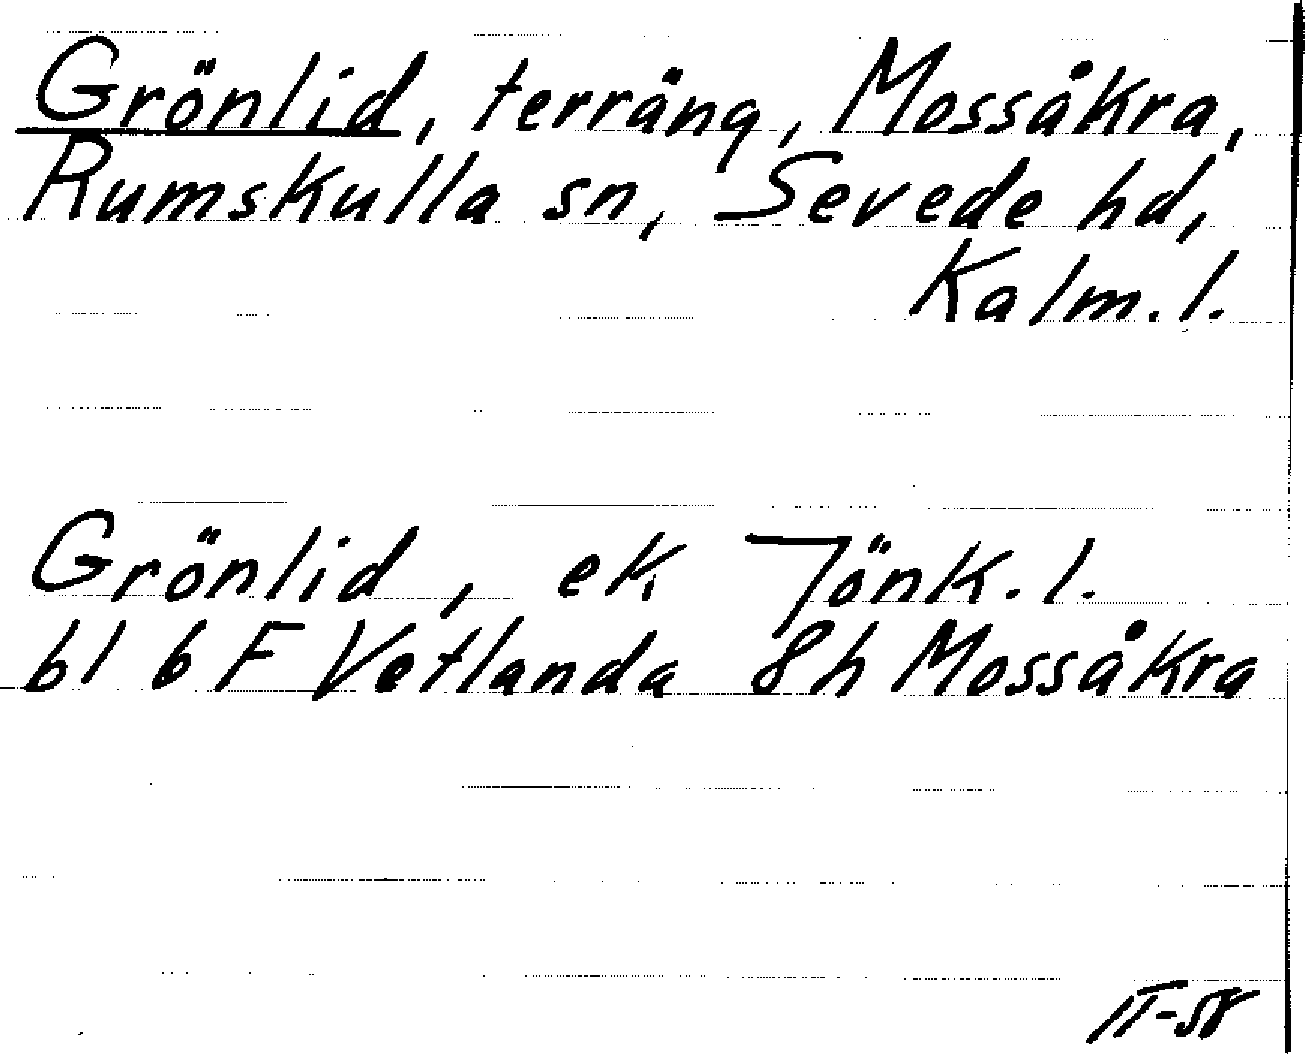 Grönlid, terräng, Mossåkra,
Rumskulla sn, Sevede hd,
Kalm. l.
Grönlid, ek Jönk. l.
bl 6 F Vetlanda 8h Mossåkra